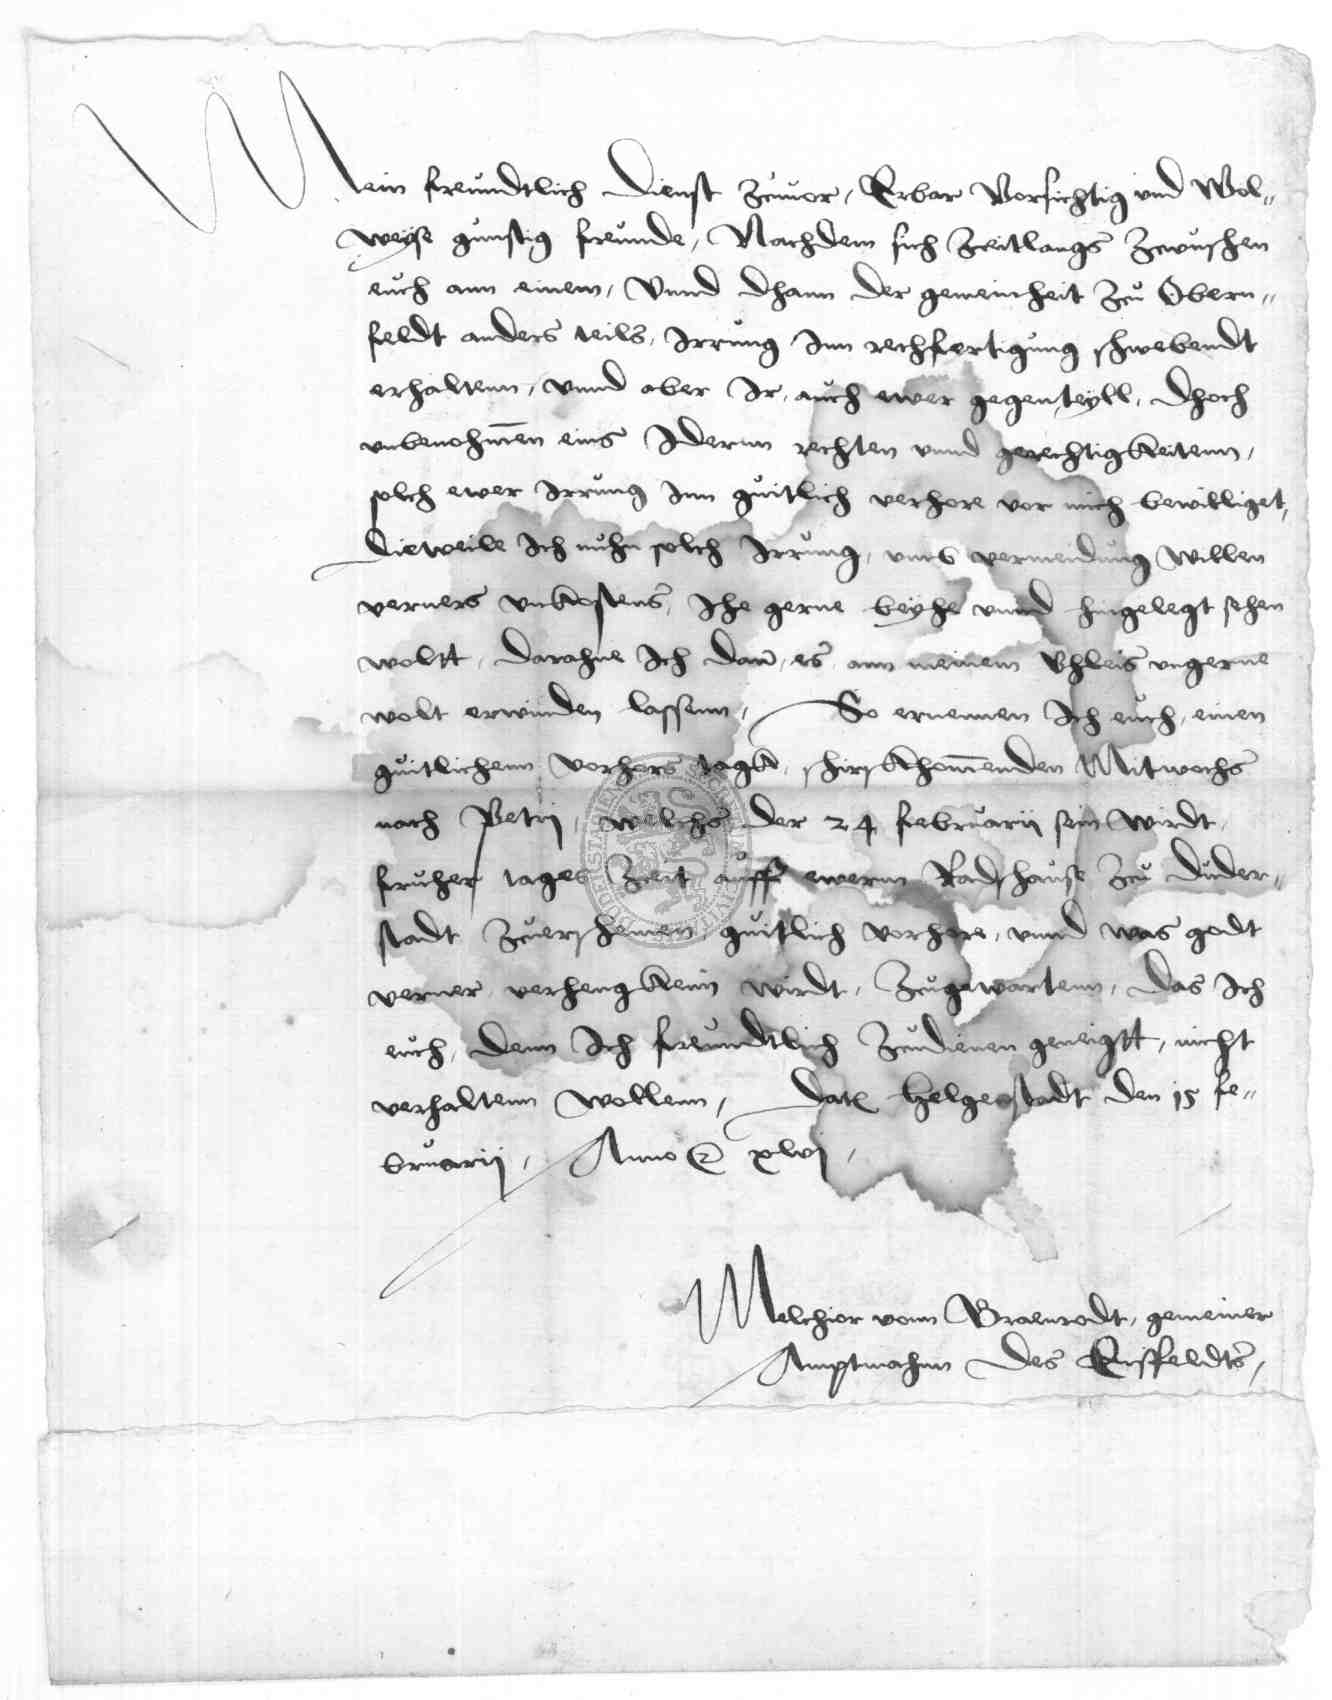 Mein freundtlich Dienst zcuuor, Erbar Vorsichtig und Wol-
weyse gunstig freunde, Nachdem sich Zeitlangs zcwuschen
euch ann einem, Unnd dhann der gemeinheit zcu Obern-
feldt anders teils, Irrung Inn rechfertigung schwebendt
erhaltenn, unnd aber Ir, auch ewer gegenteyll, Dhoch
unbenohmen eins Idernn rechten unnd gerechtigkeitenn,
solch ewer Irrung Inn guitlich verhore vor mich bewilliget,
Dieweile Ich nuhn solch Irrung, umb vermeidung willen
verners unkostens, Ihe gerne beyhe unnd hingelegt sehen
woltt, darahne Ich dan, es ann meinem Vhleis ungerne
wolt erwinden lassenn, So ernennen Ich euch, einen
guitlichenn vorhors tagk, schirskhommenden Mitwochs
nach Petrij, welchs der 24 februarij sein wirdt,
fruher tages Zeit auff ewerm Radshause zcu Duder-
stadt zcuerscheinen, guitlich vorhore, unnd was godt
verner verhengkenn wirdt, zcugewartenn, Das Ich
euch, denn Ich freundtlich zcudienen geneigtt, nicht
verhaltenn wollenn, Dat. Helgenstadt den 15 fe-
bruarij, Anno &c xlvj,
Melchior vonn Graenrodt, gemeiner
Amptmahnn des Eissfeldts,